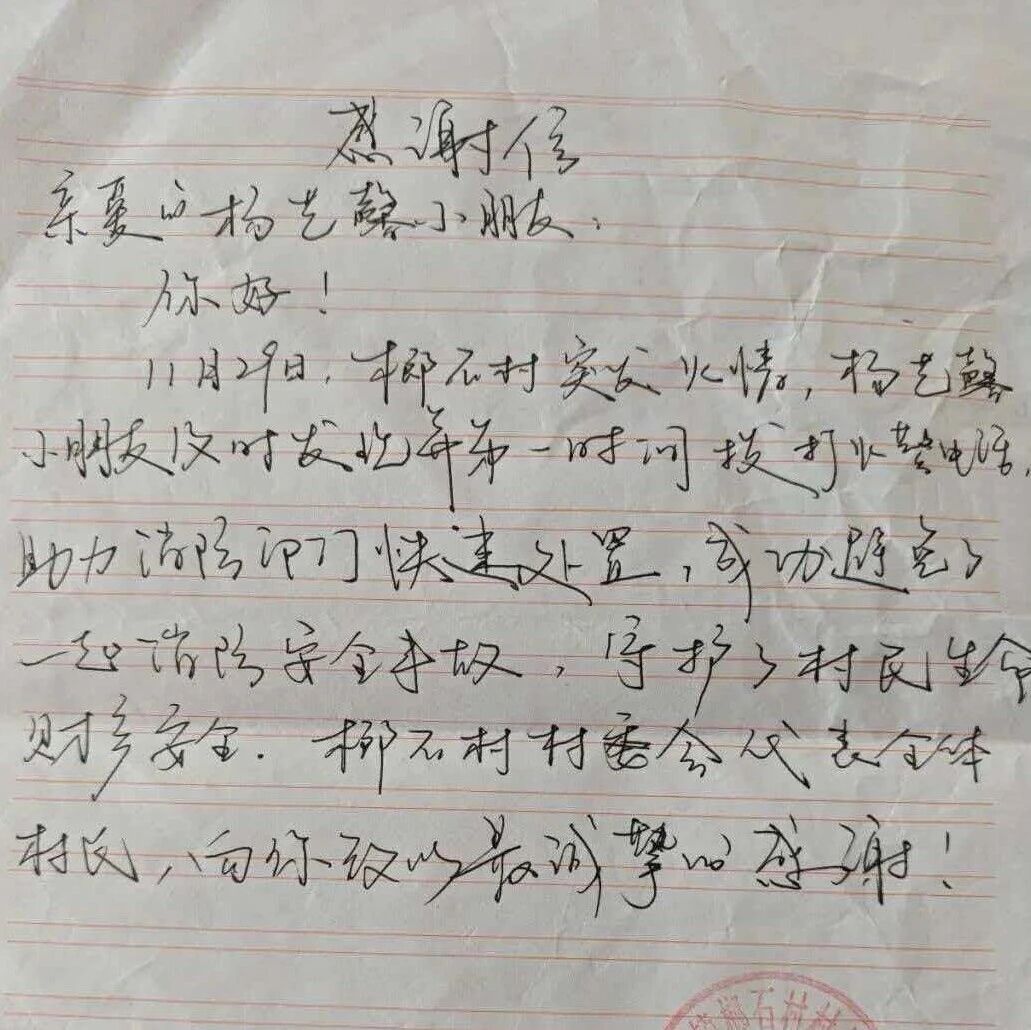 感谢信
亲爱的杨艺馨小朋友：
你好！
11月29日，榔石村突发火情，杨艺馨
小朋友及时发现并第一时间拨打火警电话，
助力消防部门快速处置，成功避免了
一起消防安全事故，守护了村民生命
财产安全。榔石村村委会代表全体
村民，向你致以最诚挚的感谢！
石村村